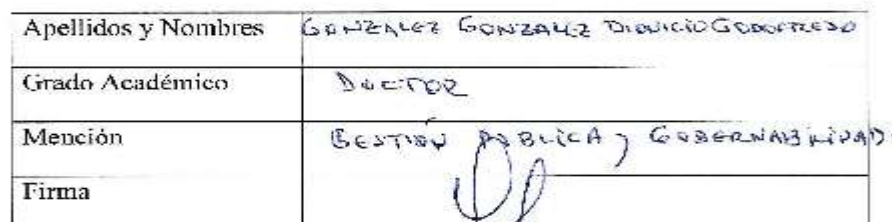 Apellidos y Nombres GONZALEZ GONZALEZ DIONICIO GODOFREDO
Grado Académico DOCTOR
Mención GESTIÓN PÚBLICA y GOBERNABILIDAD
Firma